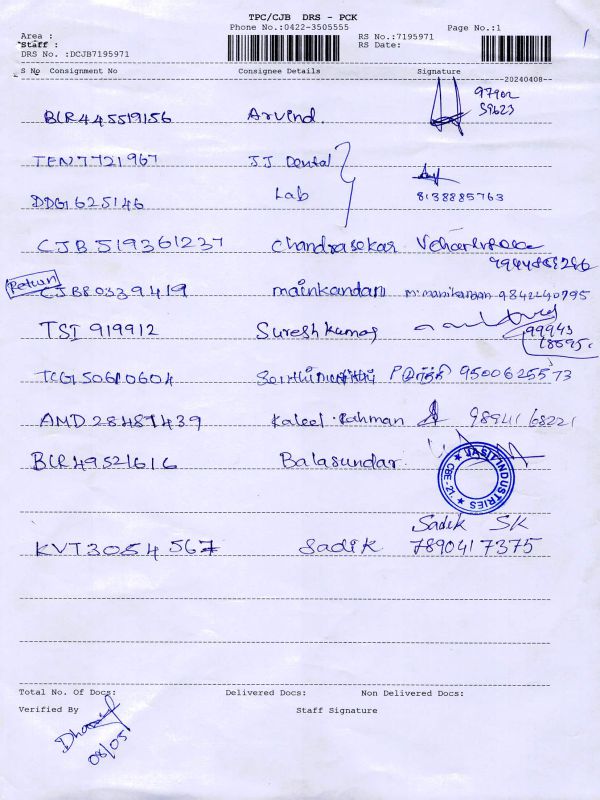 TPC/CJB DRS - PCK
Phone No.:0422-3505555
Page No.:1
Area :
Staff :
DRS No. :DCJB7195971
RS No.:7195971
RS Date:
S No Consignment No Consignee Details Signature
20240408
BLR445519156 Arvind. 97902
39623
TEN7721967 JJ Dental
DDG1625146 Lab 8138885763
CJB519361237 Chandrasekar
Return
CJB80339419 mainkandan m.manikandan 9842240795
TSI 919912 Sureshkumar 99943
18595
TCG150610604 9500625573
AMD28487439 Kaleel.Rahman 9894168221
BLR49521616 Balasundar.
INDUSTRIES
CBE-21
Sadik SK
KVT3054567 Sadik 7890417375
Total No. Of Docs: Delivered Docs: Non Delivered Docs:
Verified By Staff Signature
08/05